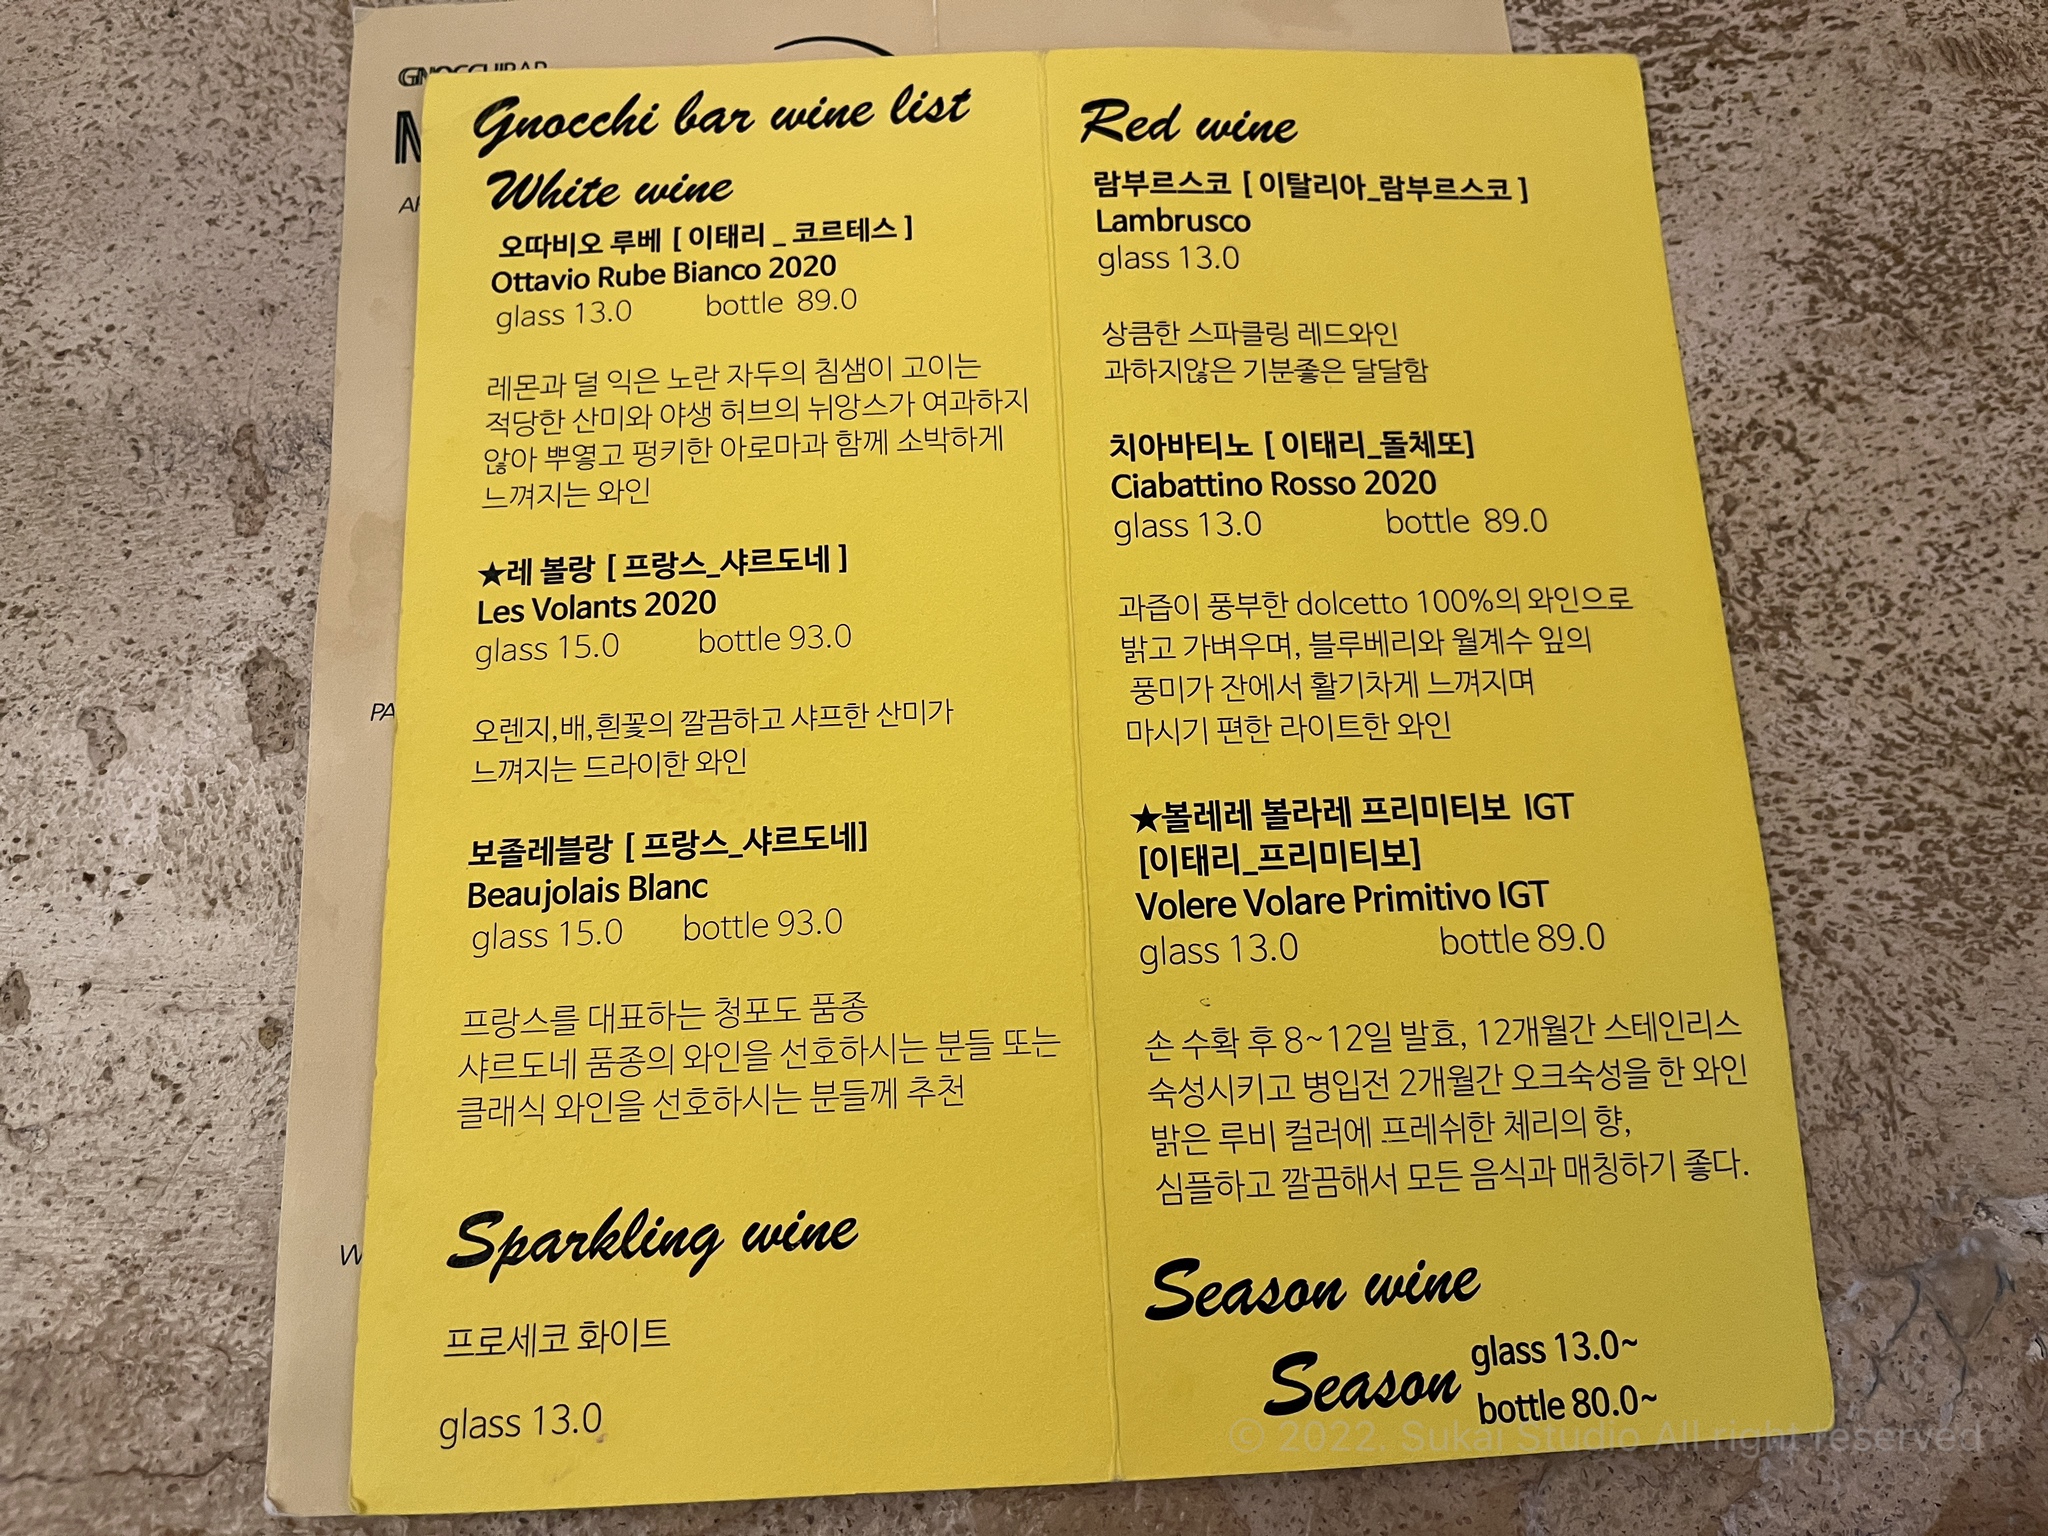 GNOCCHIBAR
Gnocchi bar wine list
White wine
오따비오 루베 [ 이태리 _ 코르테스 ]
Ottavio Rube Bianco 2020
glass 13.0 bottle 89.0
레몬과 덜 익은 노란 자두의 침샘이 고이는
적당한 산미와 야생 허브의 뉘앙스가 여과하지
않아 뿌옇고 펑키한 아로마과 함께 소박하게
느껴지는 와인
★레 볼랑 [ 프랑스_샤르도네 ]
Les Volants 2020
glass 15.0 bottle 93.0
오렌지,배,흰꽃의 깔끔하고 샤프한 산미가
느껴지는 드라이한 와인
보졸레블랑 [ 프랑스_샤르도네]
Beaujolais Blanc
glass 15.0 bottle 93.0
프랑스를 대표하는 청포도 품종
샤르도네 품종의 와인을 선호하시는 분들 또는
클래식 와인을 선호하시는 분들께 추천
Sparkling wine
프로세코 화이트
glass 13.0
Red wine
람부르스코 [ 이탈리아_람부르스코 ]
Lambrusco
glass 13.0
상큼한 스파클링 레드와인
과하지않은 기분좋은 달달함
치아바티노 [ 이태리_돌체또]
Ciabattino Rosso 2020
glass 13.0 bottle 89.0
과즙이 풍부한 dolcetto 100%의 와인으로
밝고 가벼우며, 블루베리와 월계수 잎의
풍미가 잔에서 활기차게 느껴지며
마시기 편한 라이트한 와인
★볼레레 볼라레 프리미티보 IGT
[이태리_프리미티보]
Volere Volare Primitivo IGT
glass 13.0 bottle 89.0
손 수확 후 8~12일 발효, 12개월간 스테인리스
숙성시키고 병입전 2개월간 오크숙성을 한 와인
밝은 루비 컬러에 프레쉬한 체리의 향,
심플하고 깔끔해서 모든 음식과 매칭하기 좋다.
Season wine
Season glass 13.0~
bottle 80.0~
© 2022. Sukai Studio All right reserved